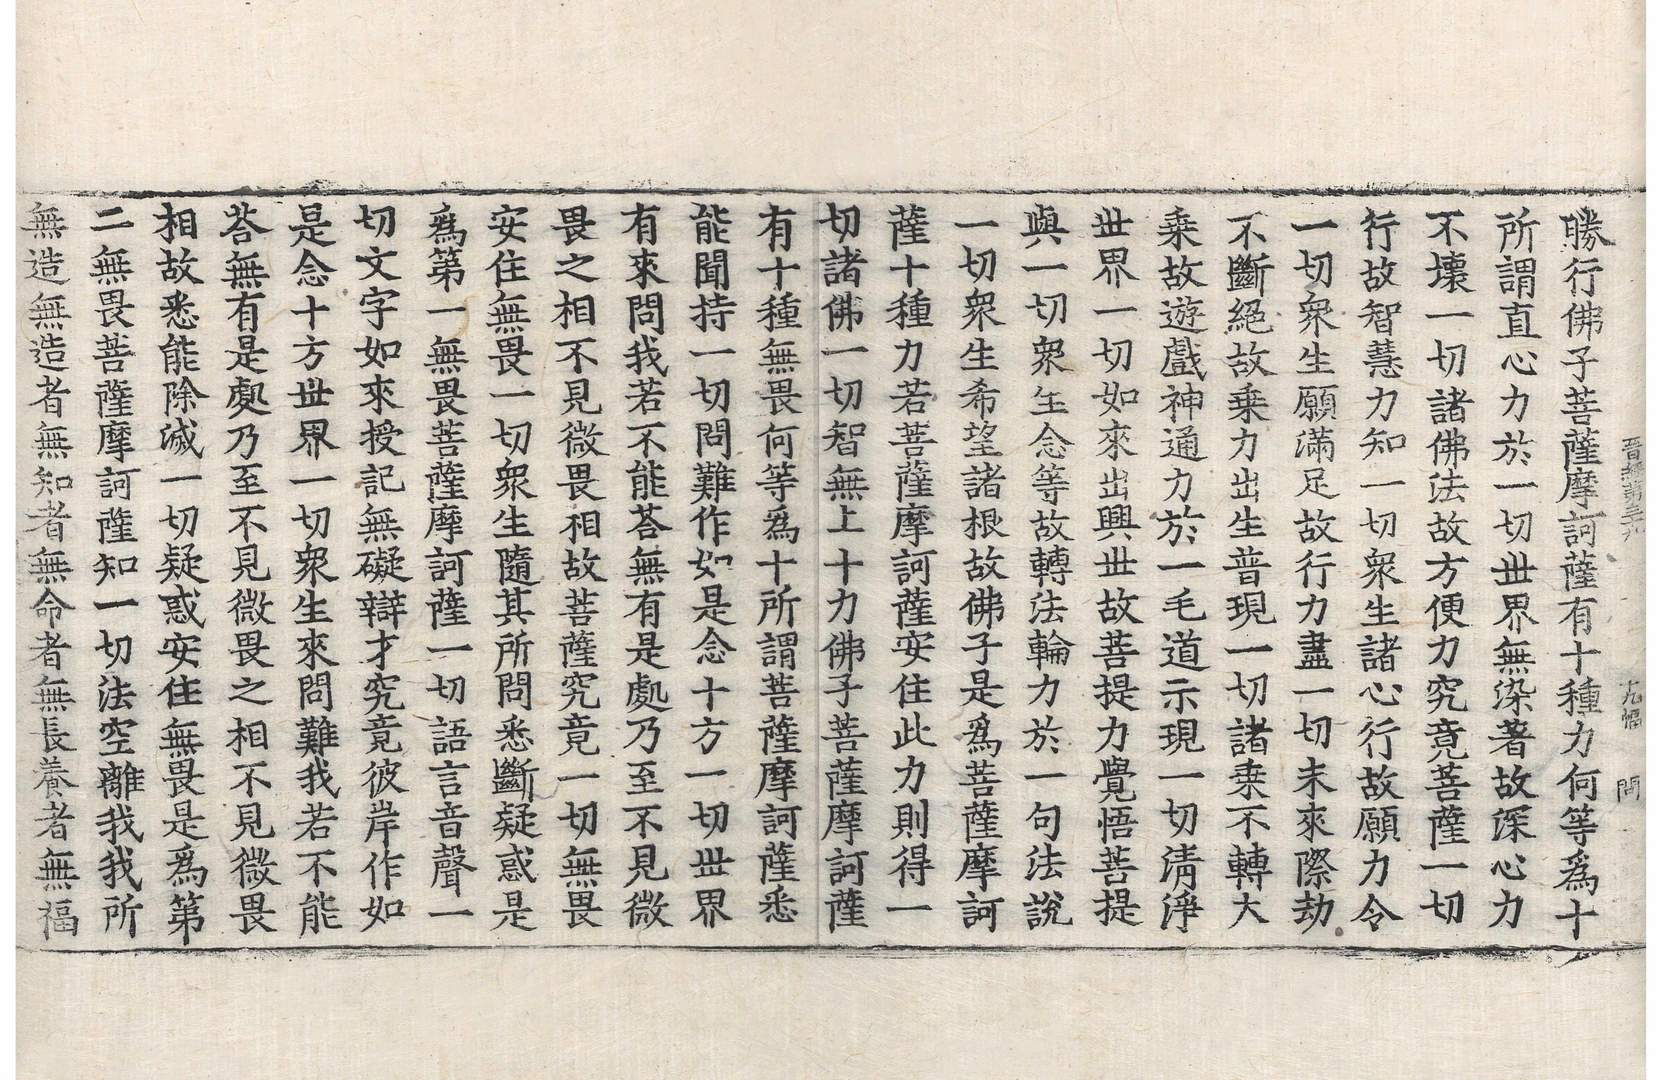 晉經第三十九　十九幅　問
勝行佛子菩薩摩訶薩有十種力何等爲十
所謂直心力於一切世界無染著故深心力
不壞一切諸佛法故方便力究竟菩薩一切
行故智慧力知一切衆生諸心行故願力令
一切衆生願滿足故行力盡一切未來際劫
不斷絕故乗力出生普現一切諸乗不轉大
乗故遊戲神通力於一毛道示現一切清淨
世界一切如來出興世故菩提力覺悟菩提
與一切衆生念等故轉法輪力於一句法說
一切衆生希望諸根故佛子是爲菩薩摩訶
薩十種力若菩薩摩訶薩安住此力則得一
切諸佛一切智無上十力佛子菩薩摩訶薩
有十種無畏何等爲十所謂菩薩摩訶薩悉
能聞持一切問難作如是念十方一切世界
有來問我若不能荅無有是處乃至不見微
畏之相不見微畏相故菩薩究竟一切無畏
安住無畏一切衆生隨其所問悉斷疑惑是
爲第一無畏菩薩摩訶薩一切語言音聲一
切文字如來授記無礙辯才究竟彼岸作如
是念十方世界一切衆生來問難我若不能
荅無有是處乃至不見微畏之相不見微畏
相故悉能除滅一切疑惑安住無畏是爲第
二無畏菩薩摩訶薩知一切法空離我我所
無造無造者無知者無命者無長養者無福